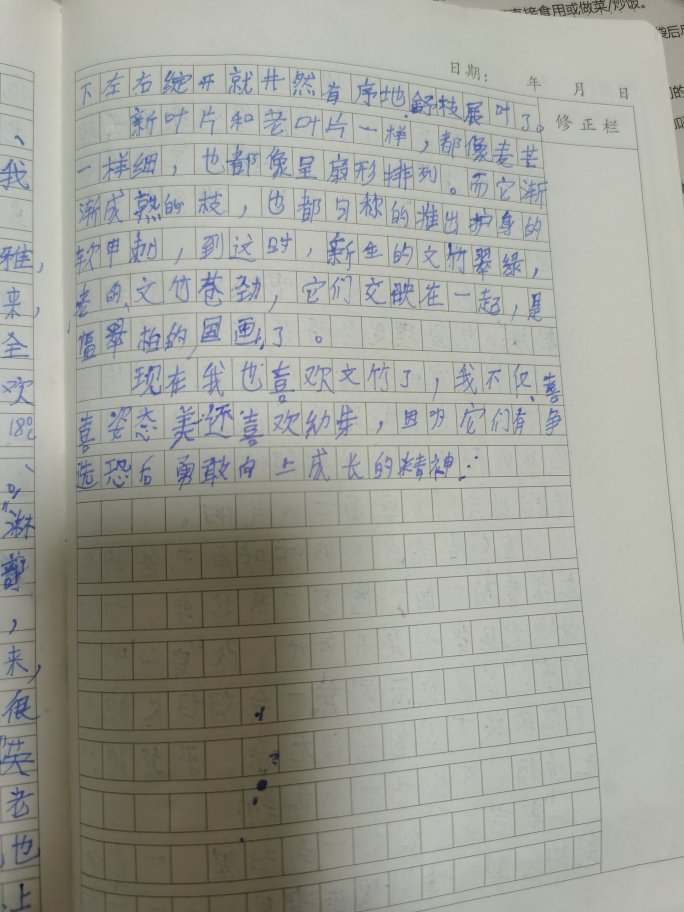 直接食用或做菜/炒饭。
日期： 年 月 日
修正栏
下左右绽开就井然有序地舒枝展叶了。
新叶片和老叶片一样，都像麦芒
一样细，也都像呈扇形排列。而它渐
渐成熟的枝，也都匀称的推出护身的
软甲刺，到这时，新生的文竹翠绿，
老的文竹苍劲，它们交映在一起，是
翠柏的国画了。
现在我也喜欢文竹了，我不仅喜
姿态美还喜欢幼芽，因为它们有争
先恐后勇敢向上成长的精神。
我
雅，
来，
全
欢
18℃
淋
，
来，
很
英
老
，也
上